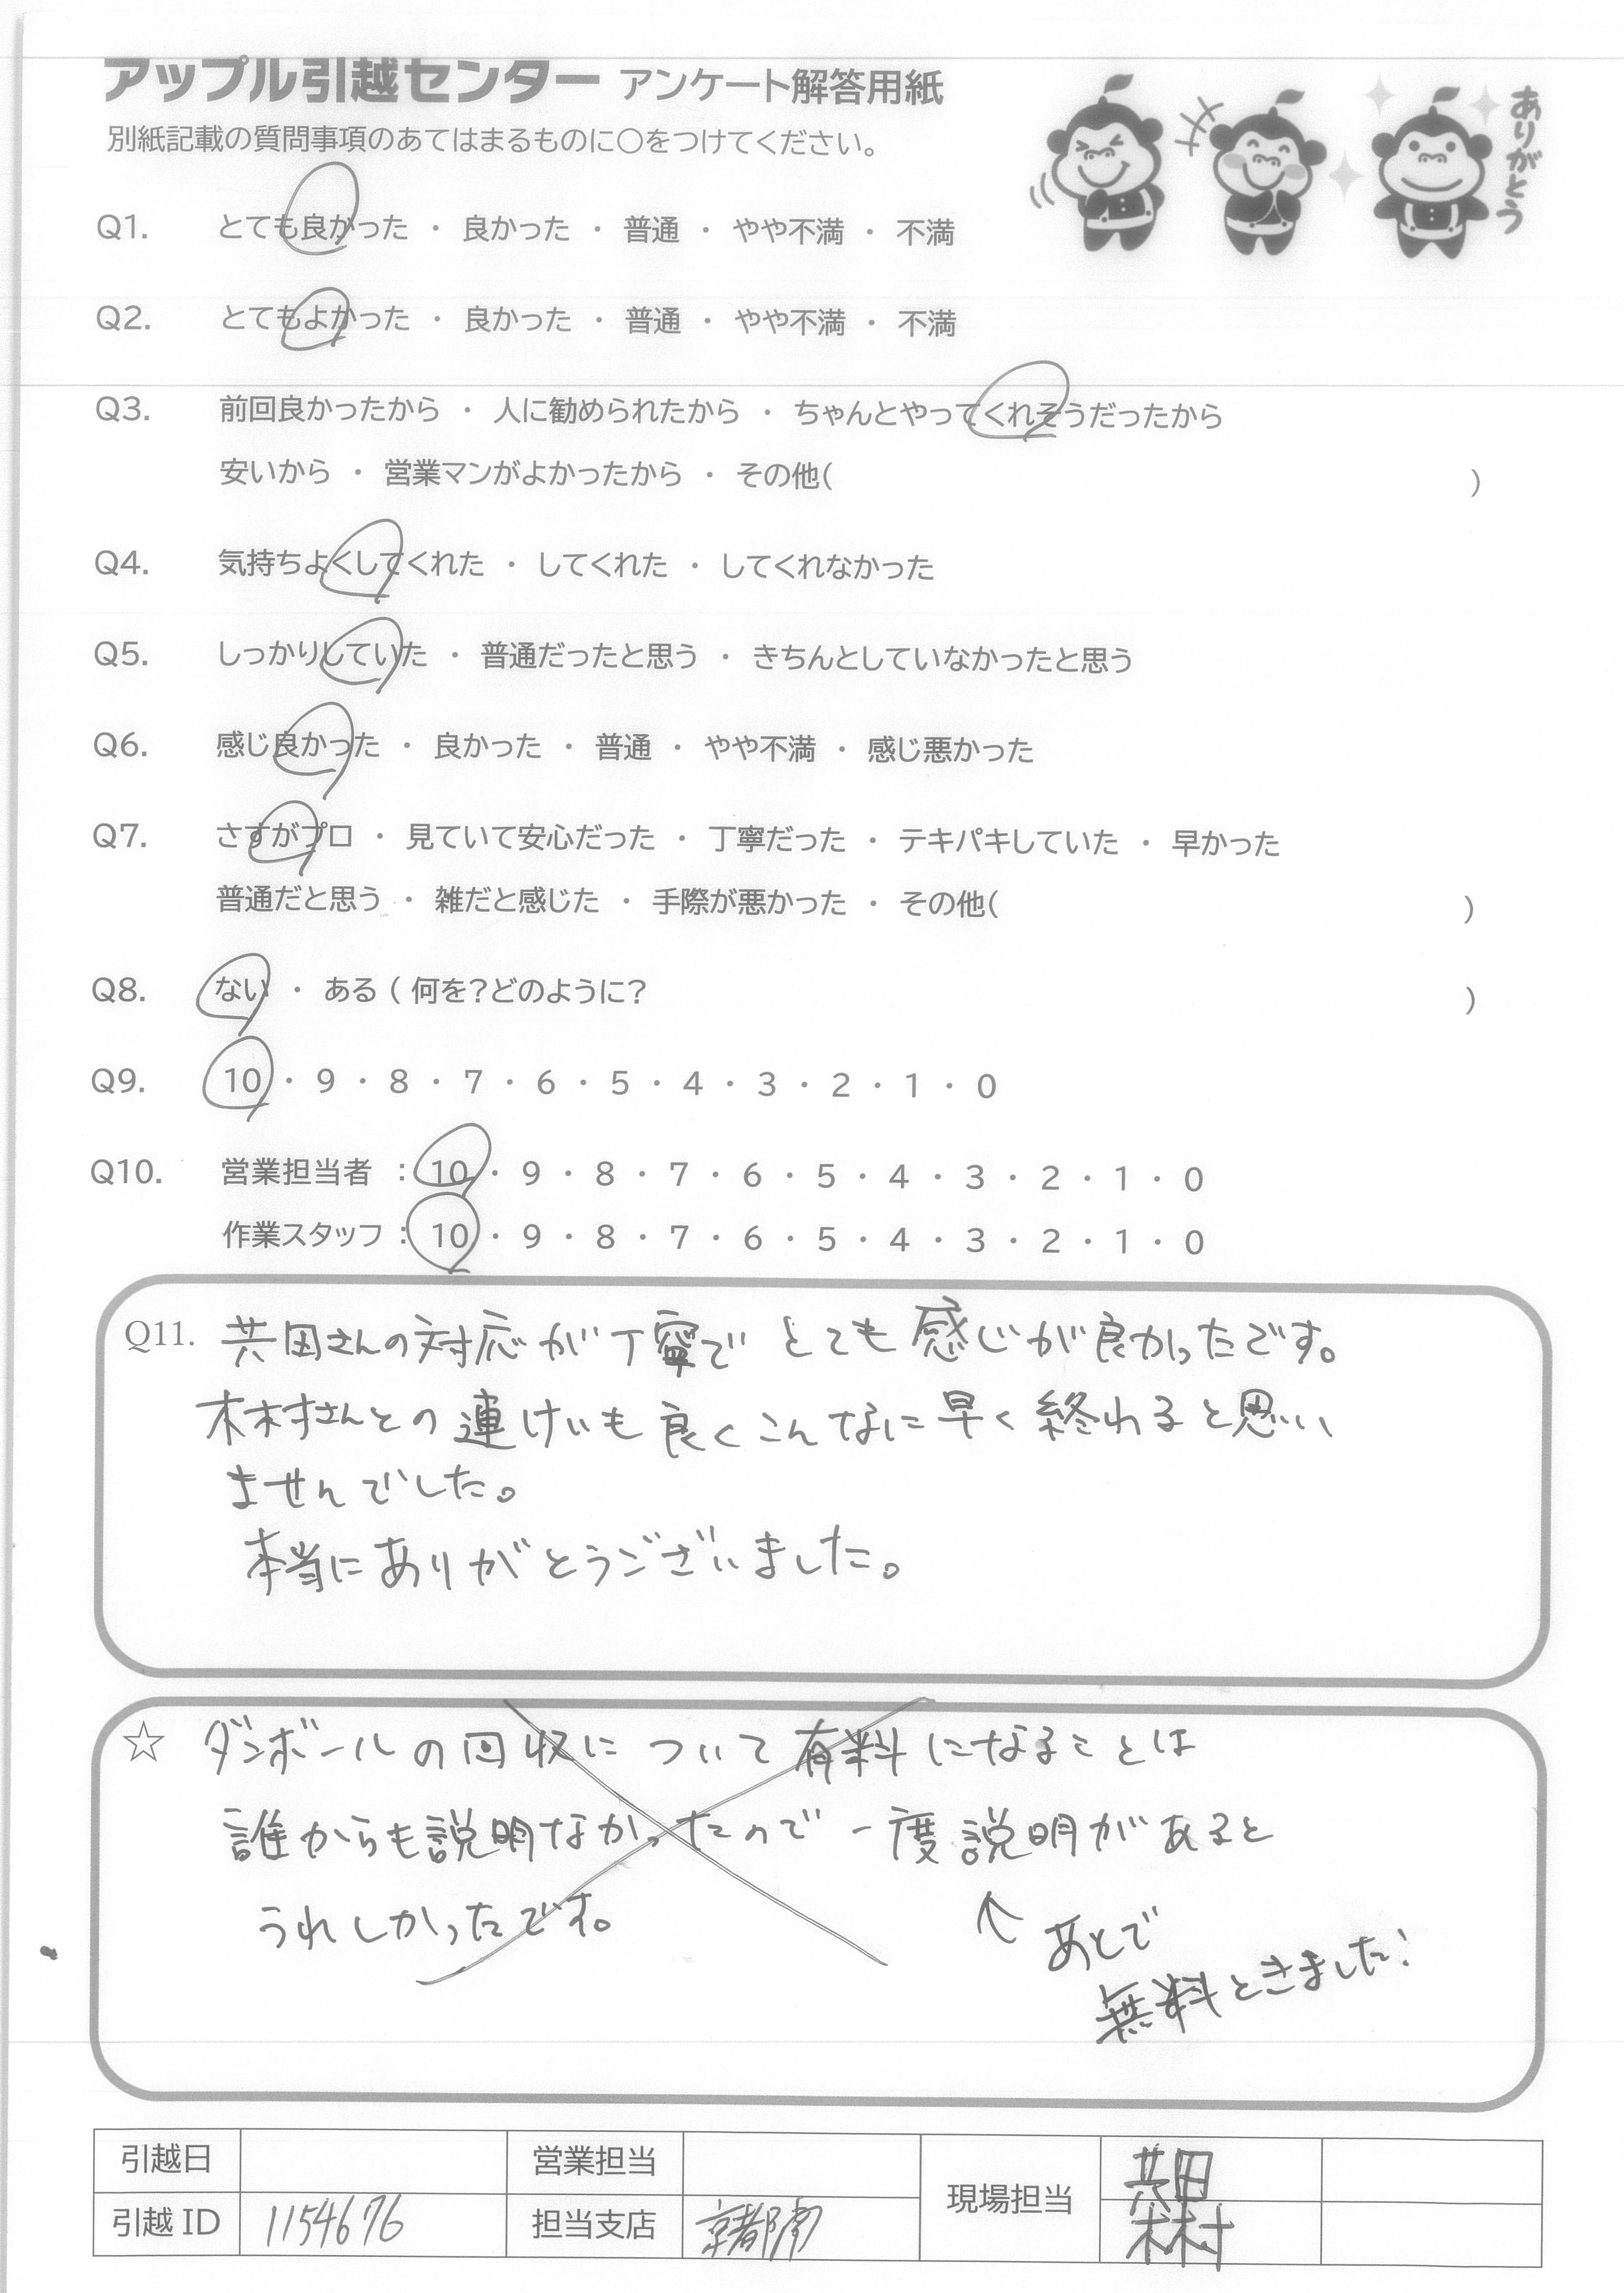 アップル引越センター アンケート解答用紙
ありがとう
別紙記載の質問事項のあてはまるものに○をつけてください。
Q1. とても良かった ・ 良かった ・ 普通 ・ やや不満 ・ 不満
Q2. とてもよかった ・ 良かった ・ 普通 ・ やや不満 ・ 不満
Q3. 前回良かったから ・ 人に勧められたから ・ ちゃんとやってくれそうだったから
安いから ・ 営業マンがよかったから ・ その他( )
Q4. 気持ちよくしてくれた ・ してくれた ・ してくれなかった
Q5. しっかりしていた ・ 普通だったと思う ・ きちんとしていなかったと思う
Q6. 感じ良かった ・ 良かった ・ 普通 ・ やや不満 ・ 感じ悪かった
Q7. さすがプロ ・ 見ていて安心だった ・ 丁寧だった ・ テキパキしていた ・ 早かった
普通だと思う ・ 雑だと感じた ・ 手際が悪かった ・ その他( )
Q8. ない ・ ある ( 何を?どのように? )
Q9. 10 ・ 9 ・ 8 ・ 7 ・ 6 ・ 5 ・ 4 ・ 3 ・ 2 ・ 1 ・ 0
Q10. 営業担当者 : 10 ・ 9 ・ 8 ・ 7 ・ 6 ・ 5 ・ 4 ・ 3 ・ 2 ・ 1 ・ 0
作業スタッフ : 10 ・ 9 ・ 8 ・ 7 ・ 6 ・ 5 ・ 4 ・ 3 ・ 2 ・ 1 ・ 0
Q11. 共田さんの対応が丁寧で とても感じが良かったです。
木村さんとの連けいも良くこんなに早く終わると思い
ませんでした。
本当にありがとうございました。
☆ ダンボールの回収について有料になることは
誰からも説明なかったので一度説明があると
うれしかったです。
↑ あとで
無料ときました!
引越日 営業担当 現場担当 共田
引越ID 1154676 担当支店 京都南 木村